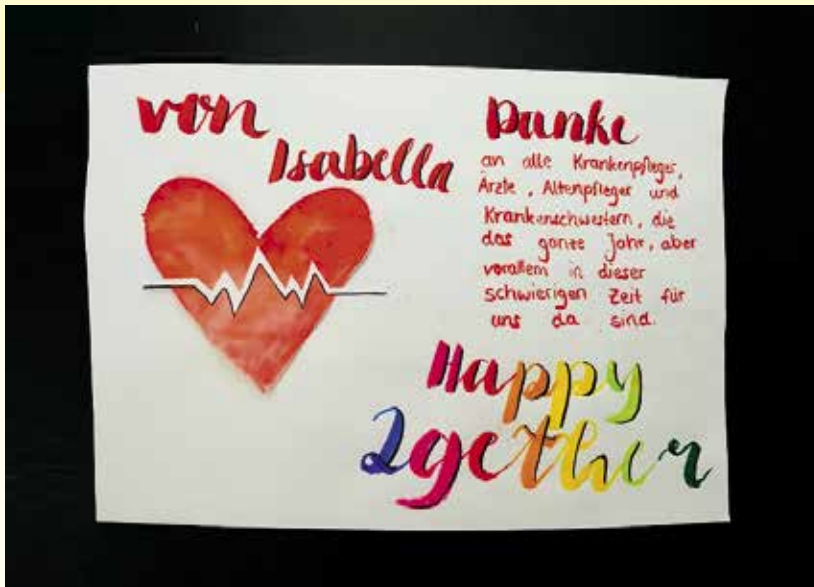 von
Isabella
Danke
an alle Krankenpfleger,
Ärzte, Altenpfleger und
Krankenschwestern, die
das ganze Jahr, aber
vorallem in dieser
schwierigen Zeit für
uns da sind.
Happy
2gether